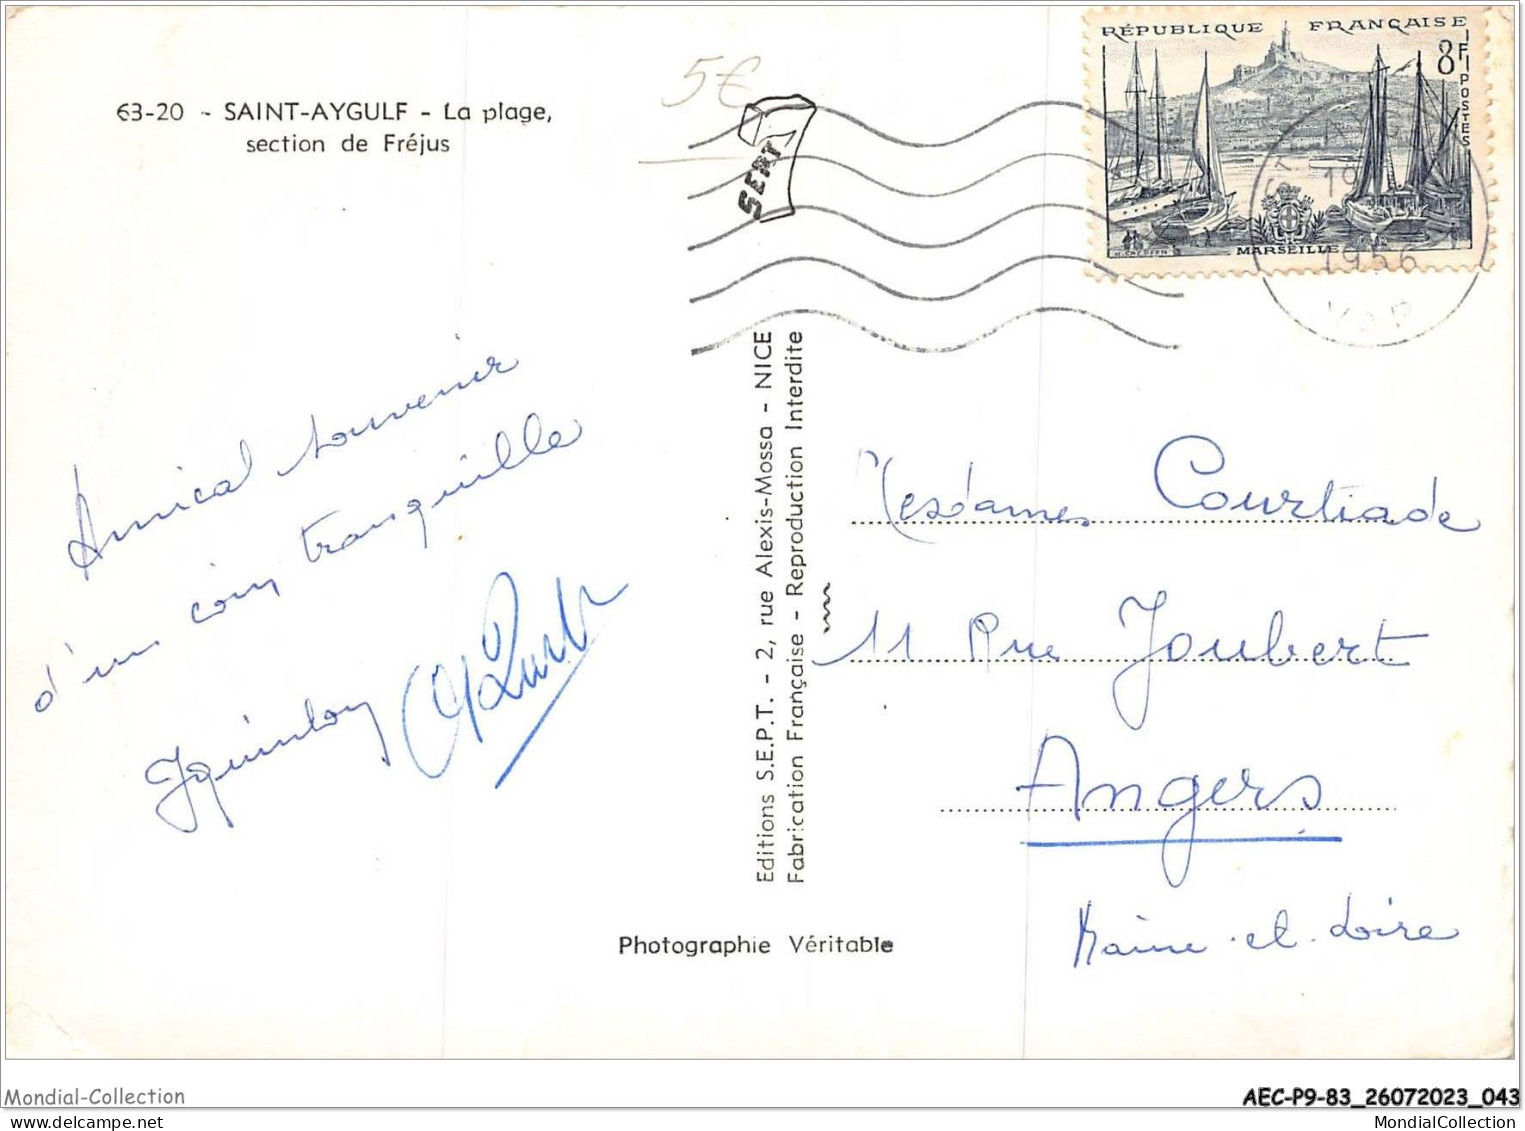 63-20 - SAINT-AYGULF - La plage,
section de Fréjus
5€
SEPT
RÉPUBLIQUE FRANÇAISE
8F
POSTES
MARSEILLE
1956
VAR
Amical souvenir
d'un coin tranquille
Editions S.E.P.T. - 2, rue Alexis-Mossa - NICE
Fabrication Française - Reproduction Interdite
Mesdames Courtiade
11 Rue Joubert
Angers
Maine-et-Loire
Photographie Véritable
Mondial-Collection
AEC-P9-83_26072023_043
MondialCollection